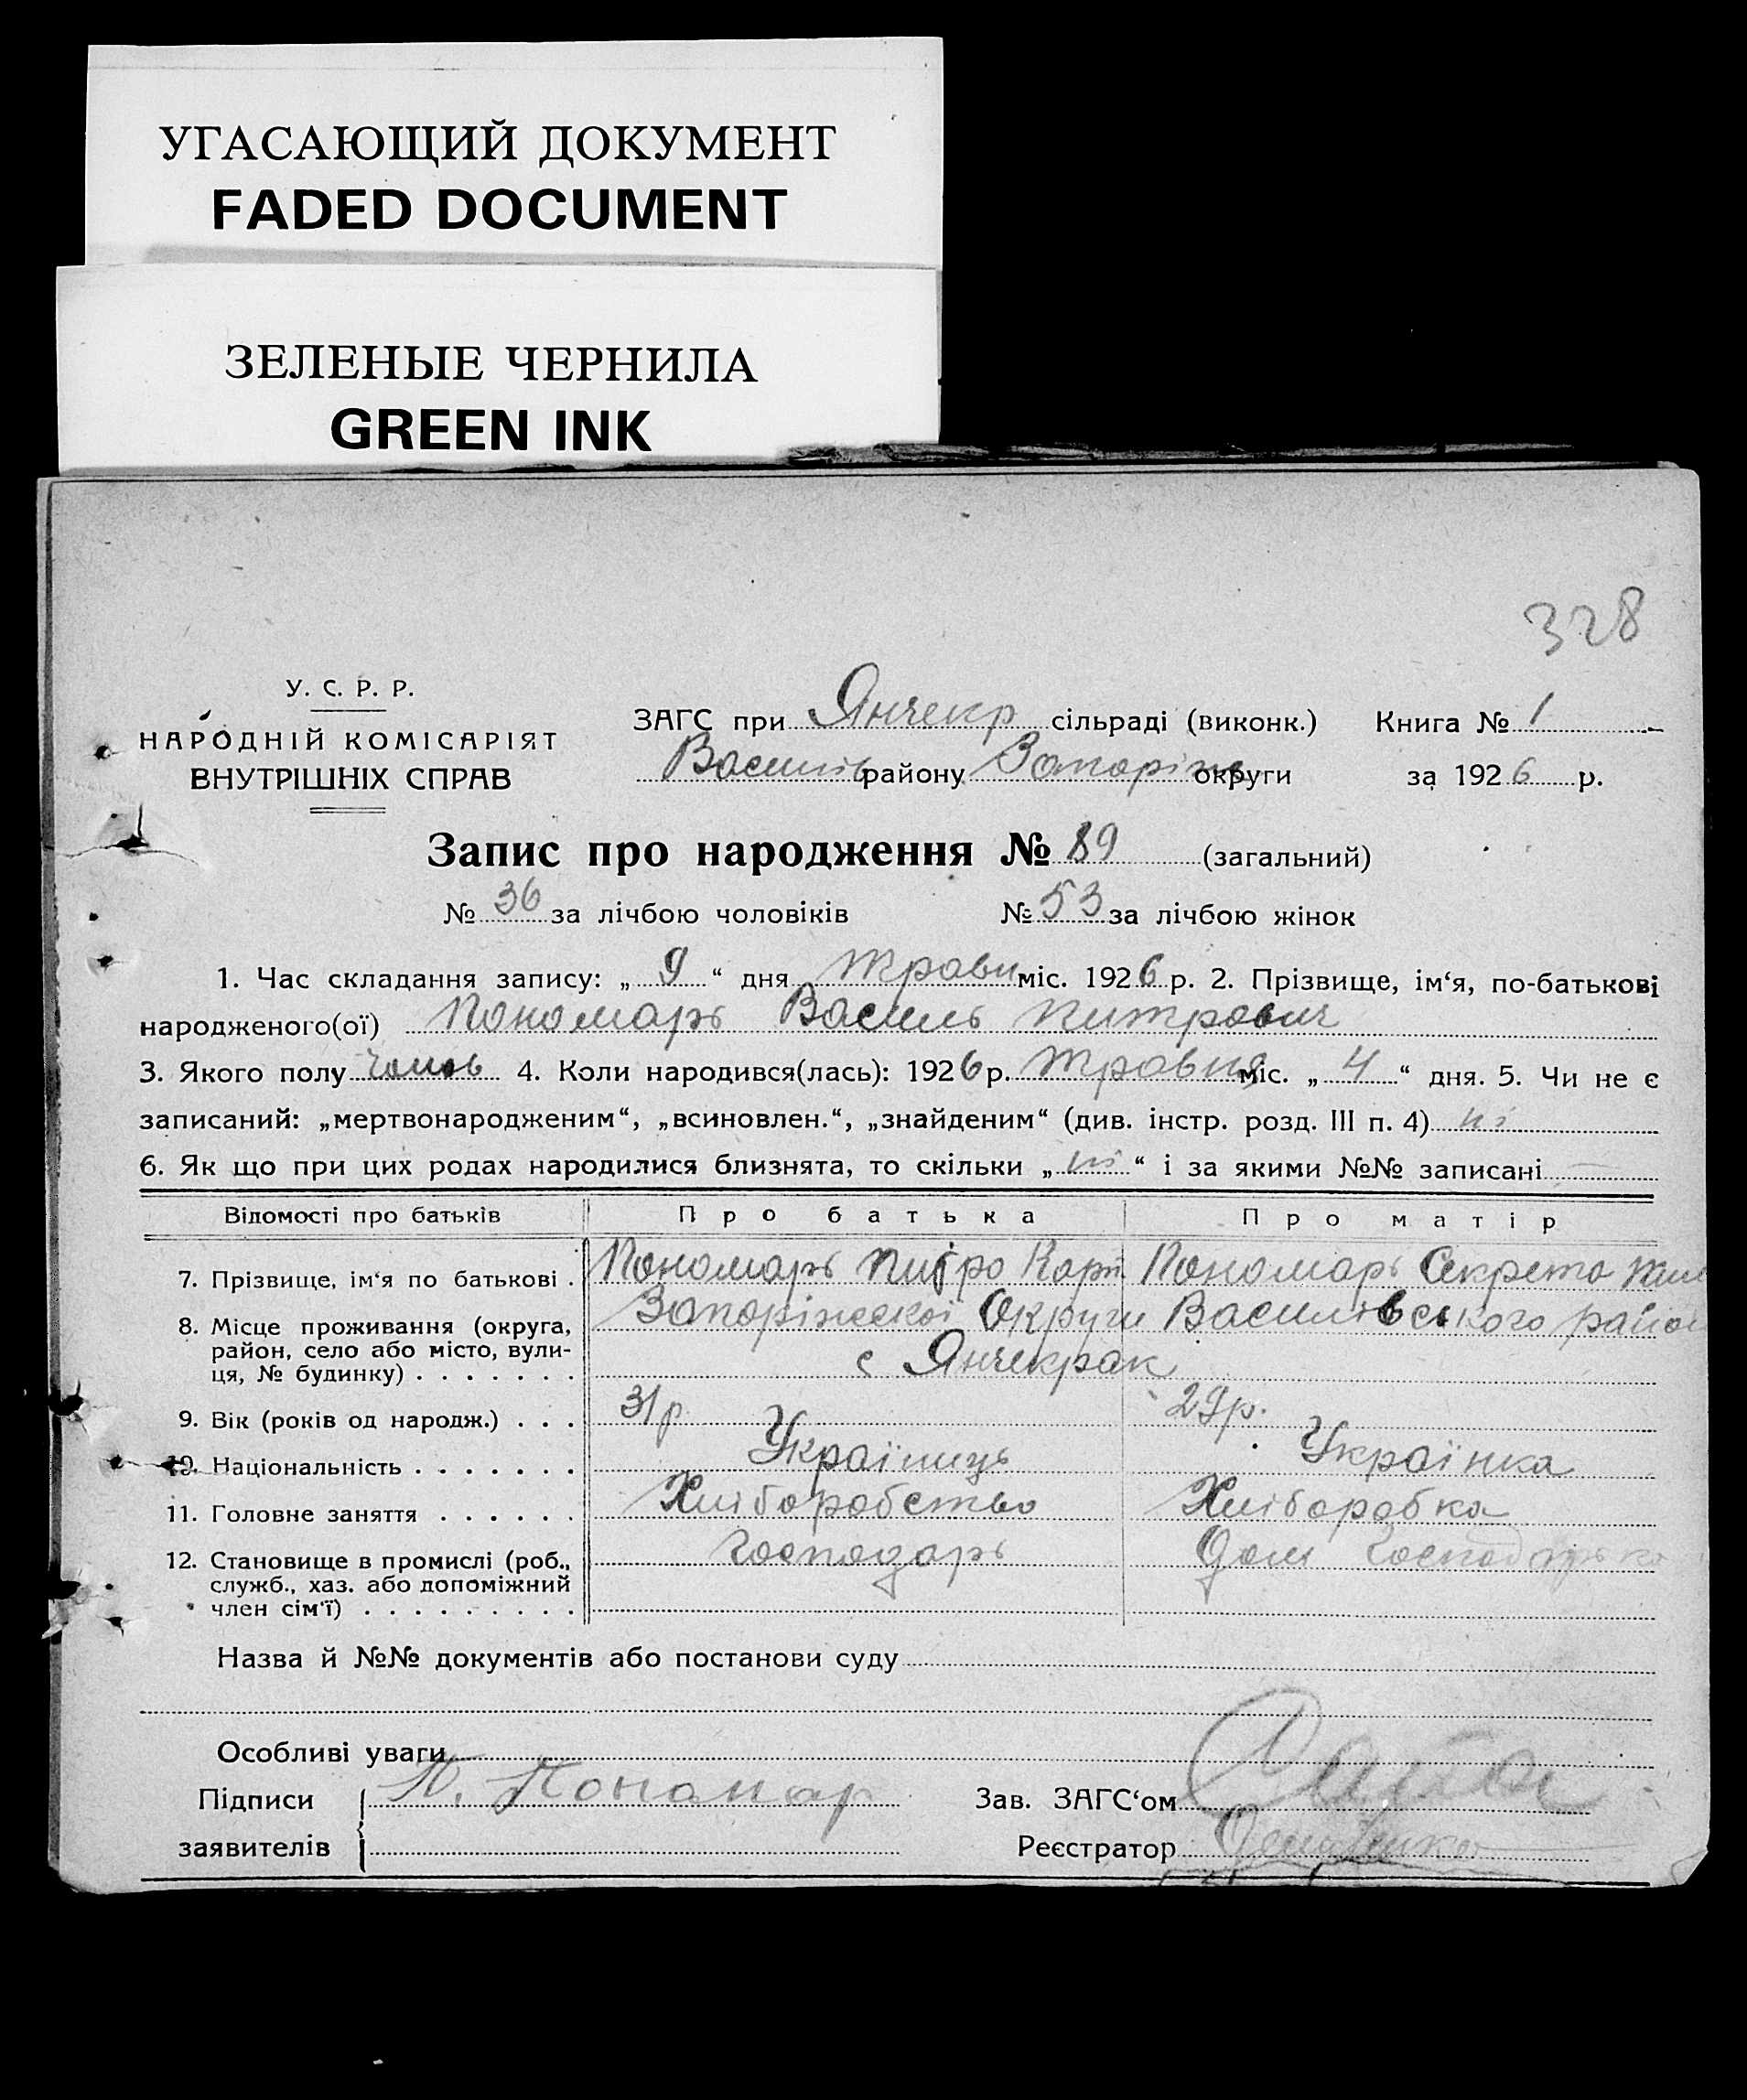 УГАСАЮЩИЙ ДОКУМЕНТ
FADED DOCUMENT
ЗЕЛЕНЫЕ ЧЕРНИЛА
GREEN INK
328
У. С. Р. Р.
НАРОДНІЙ КОМІСАРІЯТ
ВНУТРІШНІХ СПРАВ
ЗАГС при Янчекр сільраді (виконк.) Книга № 1
Василів району Запоріж округи за 1926 р.
Запис про народження № 89 (загальний)
№ 36 за лічбою чоловіків № 53 за лічбою жінок
1. Час складання запису: „ 9 “ дня Травн міс. 1926 р. 2. Прізвище, ім‘я, по-батькові
народженого(ої) Пономарь Василь Питрович
3. Якого полу чолов 4. Коли народився(лась): 1926 р. Травня міс. „ 4 “ дня. 5. Чи не є
записаний: „мертвонародженим“, „всиновлен.“, „знайденим“ (див. інстр. розд. III п. 4) ні
6. Як що при цих родах народилися близнята, то скільки „ ні “ і за якими №№ записані —
Відомості про батьків Про батька Про матір
7. Прізвище, ім‘я по батькові . Пономарь Питро Карп. Пономарь Секрета
8. Місце проживання (округа, Запоріжскої Округи Василівського район
район, село або місто, вули-
ця, № будинку) . . . . . . . с Янчекрак
9. Вік (років од народж.) . . . 31 р. 29 р.
10. Національність . . . . . . . Україниць Українка
11. Головне заняття . . . . . . Хліборобство Хліборобка
12. Становище в промислі (роб., господарь Дом господарька
служб., хаз. або допоміжний
член сім‘ї) . . . . . . . . .
Назва й №№ документів або постанови суду
Особливі уваги
Підписи П. Пономар Зав. ЗАГС‘ом
заявителів Реєстратор